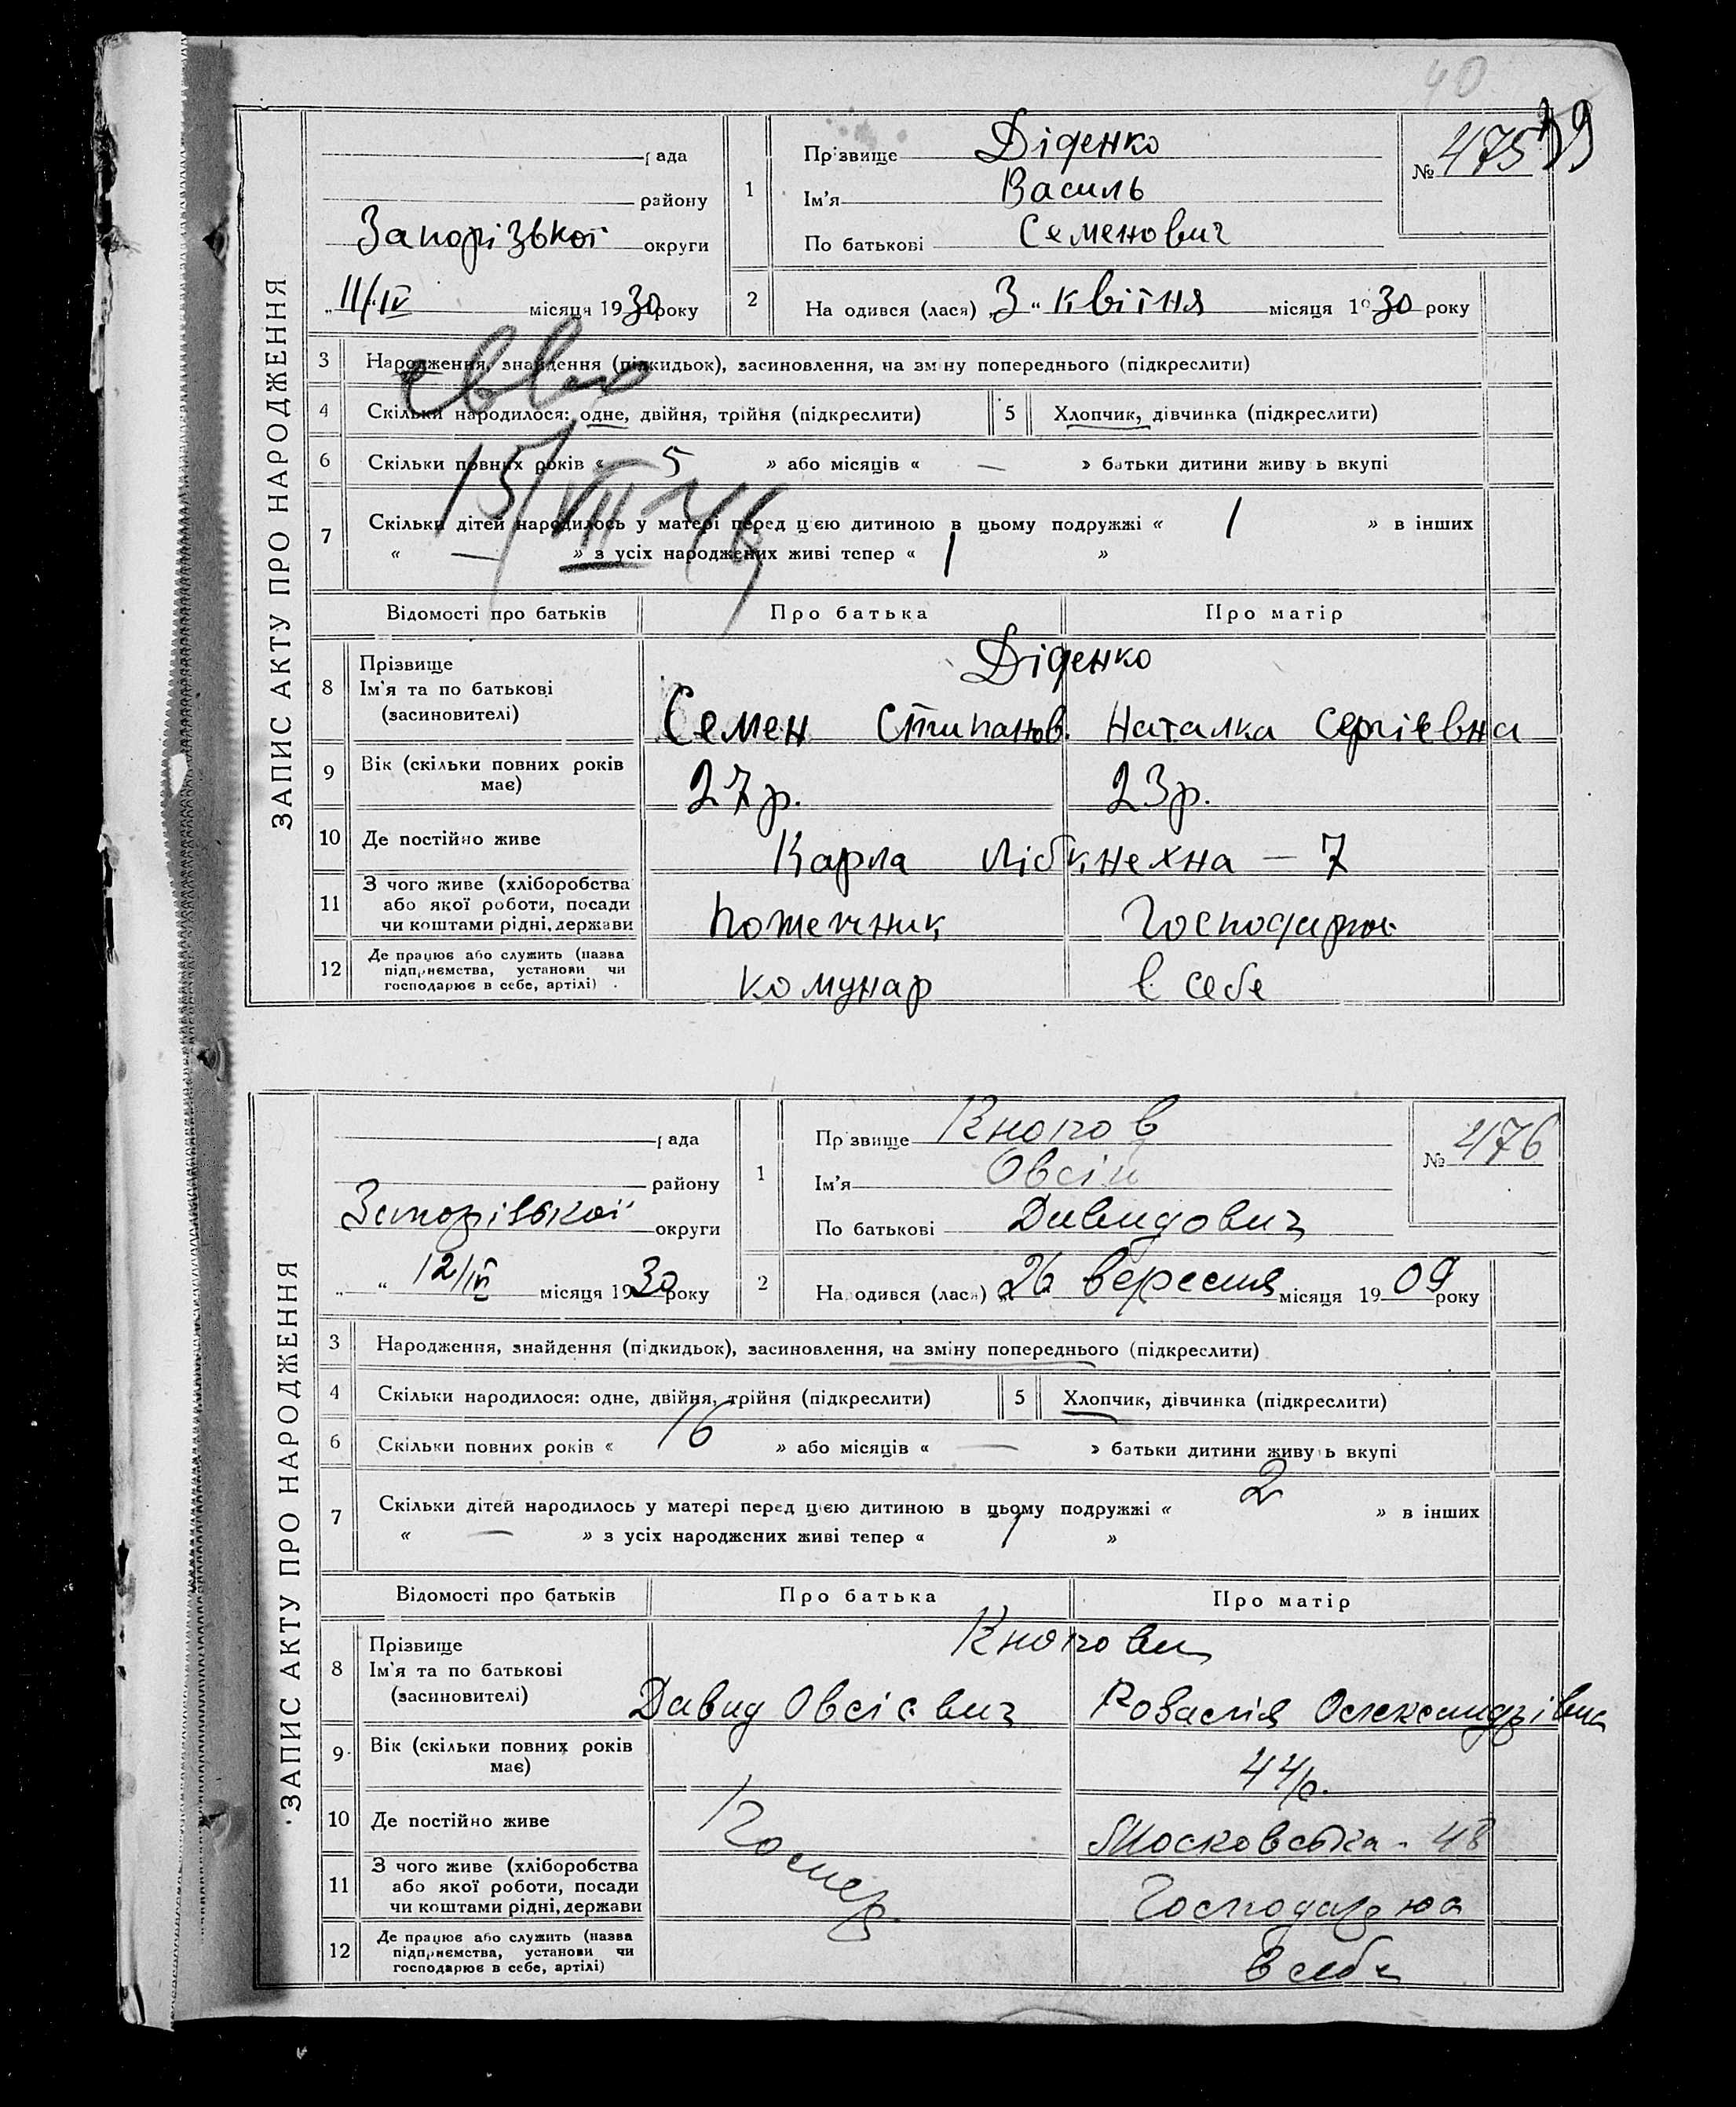 40
39
ЗАПИС АКТУ ПРО НАРОДЖЕННЯ
рада
району
Запорізької округи
„11/IV місяця 1930 року
1
Прізвище Діденко
Ім'я Василь
По батькові Семенович
№ 475
2
На одився (лася) „3“ квітня місяця 1930 року
3 Народження, знайдення (підкидьок), засиновлення, на зміну попереднього (підкреслити)
4 Скільки народилося: одне, двійня, трійня (підкреслити)
5 Хлопчик, дівчинка (підкреслити)
6 Скільки повних років « 5 » або місяців « — » батьки дитини живуть вкупі
15/VII-46
7 Скільки дітей народилось у матері перед цією дитиною в цьому подружжі « 1 » в інших
« — » з усіх народжених живі тепер « 1 »
Відомості про батьків Про батька Про матір
8 Прізвище
Ім'я та по батькові
(засиновителі)
Діденко
Семен Стипанов. Наталка Сергієвна
9 Вік (скільки повних років має) 27 р. 23 р.
10 Де постійно живе Карла Лібкнехна — 7
11 З чого живе (хліборобства
або якої роботи, посади
чи коштами рідні, держави
Пожежник Господарює
12 Де працює або служить (назва
підприємства, установи чи
господарює в себе, артілі)
комунар в себе
ЗАПИС АКТУ ПРО НАРОДЖЕННЯ
рада
району
Запорізької округи
„ “ 12/IV місяця 1930 року
1
Прізвище Кнопов
Ім'я Овсій
По батькові Давидович
№ 476
2
Народився (лася) 26 вересня місяця 1909 року
3 Народження, знайдення (підкидьок), засиновлення, на зміну попереднього (підкреслити)
4 Скільки народилося: одне, двійня, трійня (підкреслити)
5 Хлопчик, дівчинка (підкреслити)
6 Скільки повних років « 16 » або місяців « — » батьки дитини живуть вкупі
7 Скільки дітей народилось у матері перед цією дитиною в цьому подружжі « 2 » в інших
« — » з усіх народжених живі тепер « 1 »
Відомості про батьків Про батька Про матір
8 Прізвище
Ім'я та по батькові
(засиновителі)
Кнопови
Давид Овсієвич Розалія Олександрівна
9 Вік (скільки повних років має) 44 р.
10 Де постійно живе Московська - 48
11 З чого живе (хліборобства
або якої роботи, посади
чи коштами рідні, держави
Помер Господарює
12 Де працює або служить (назва
підприємства, установи чи
господарює в себе, артілі)
в себе